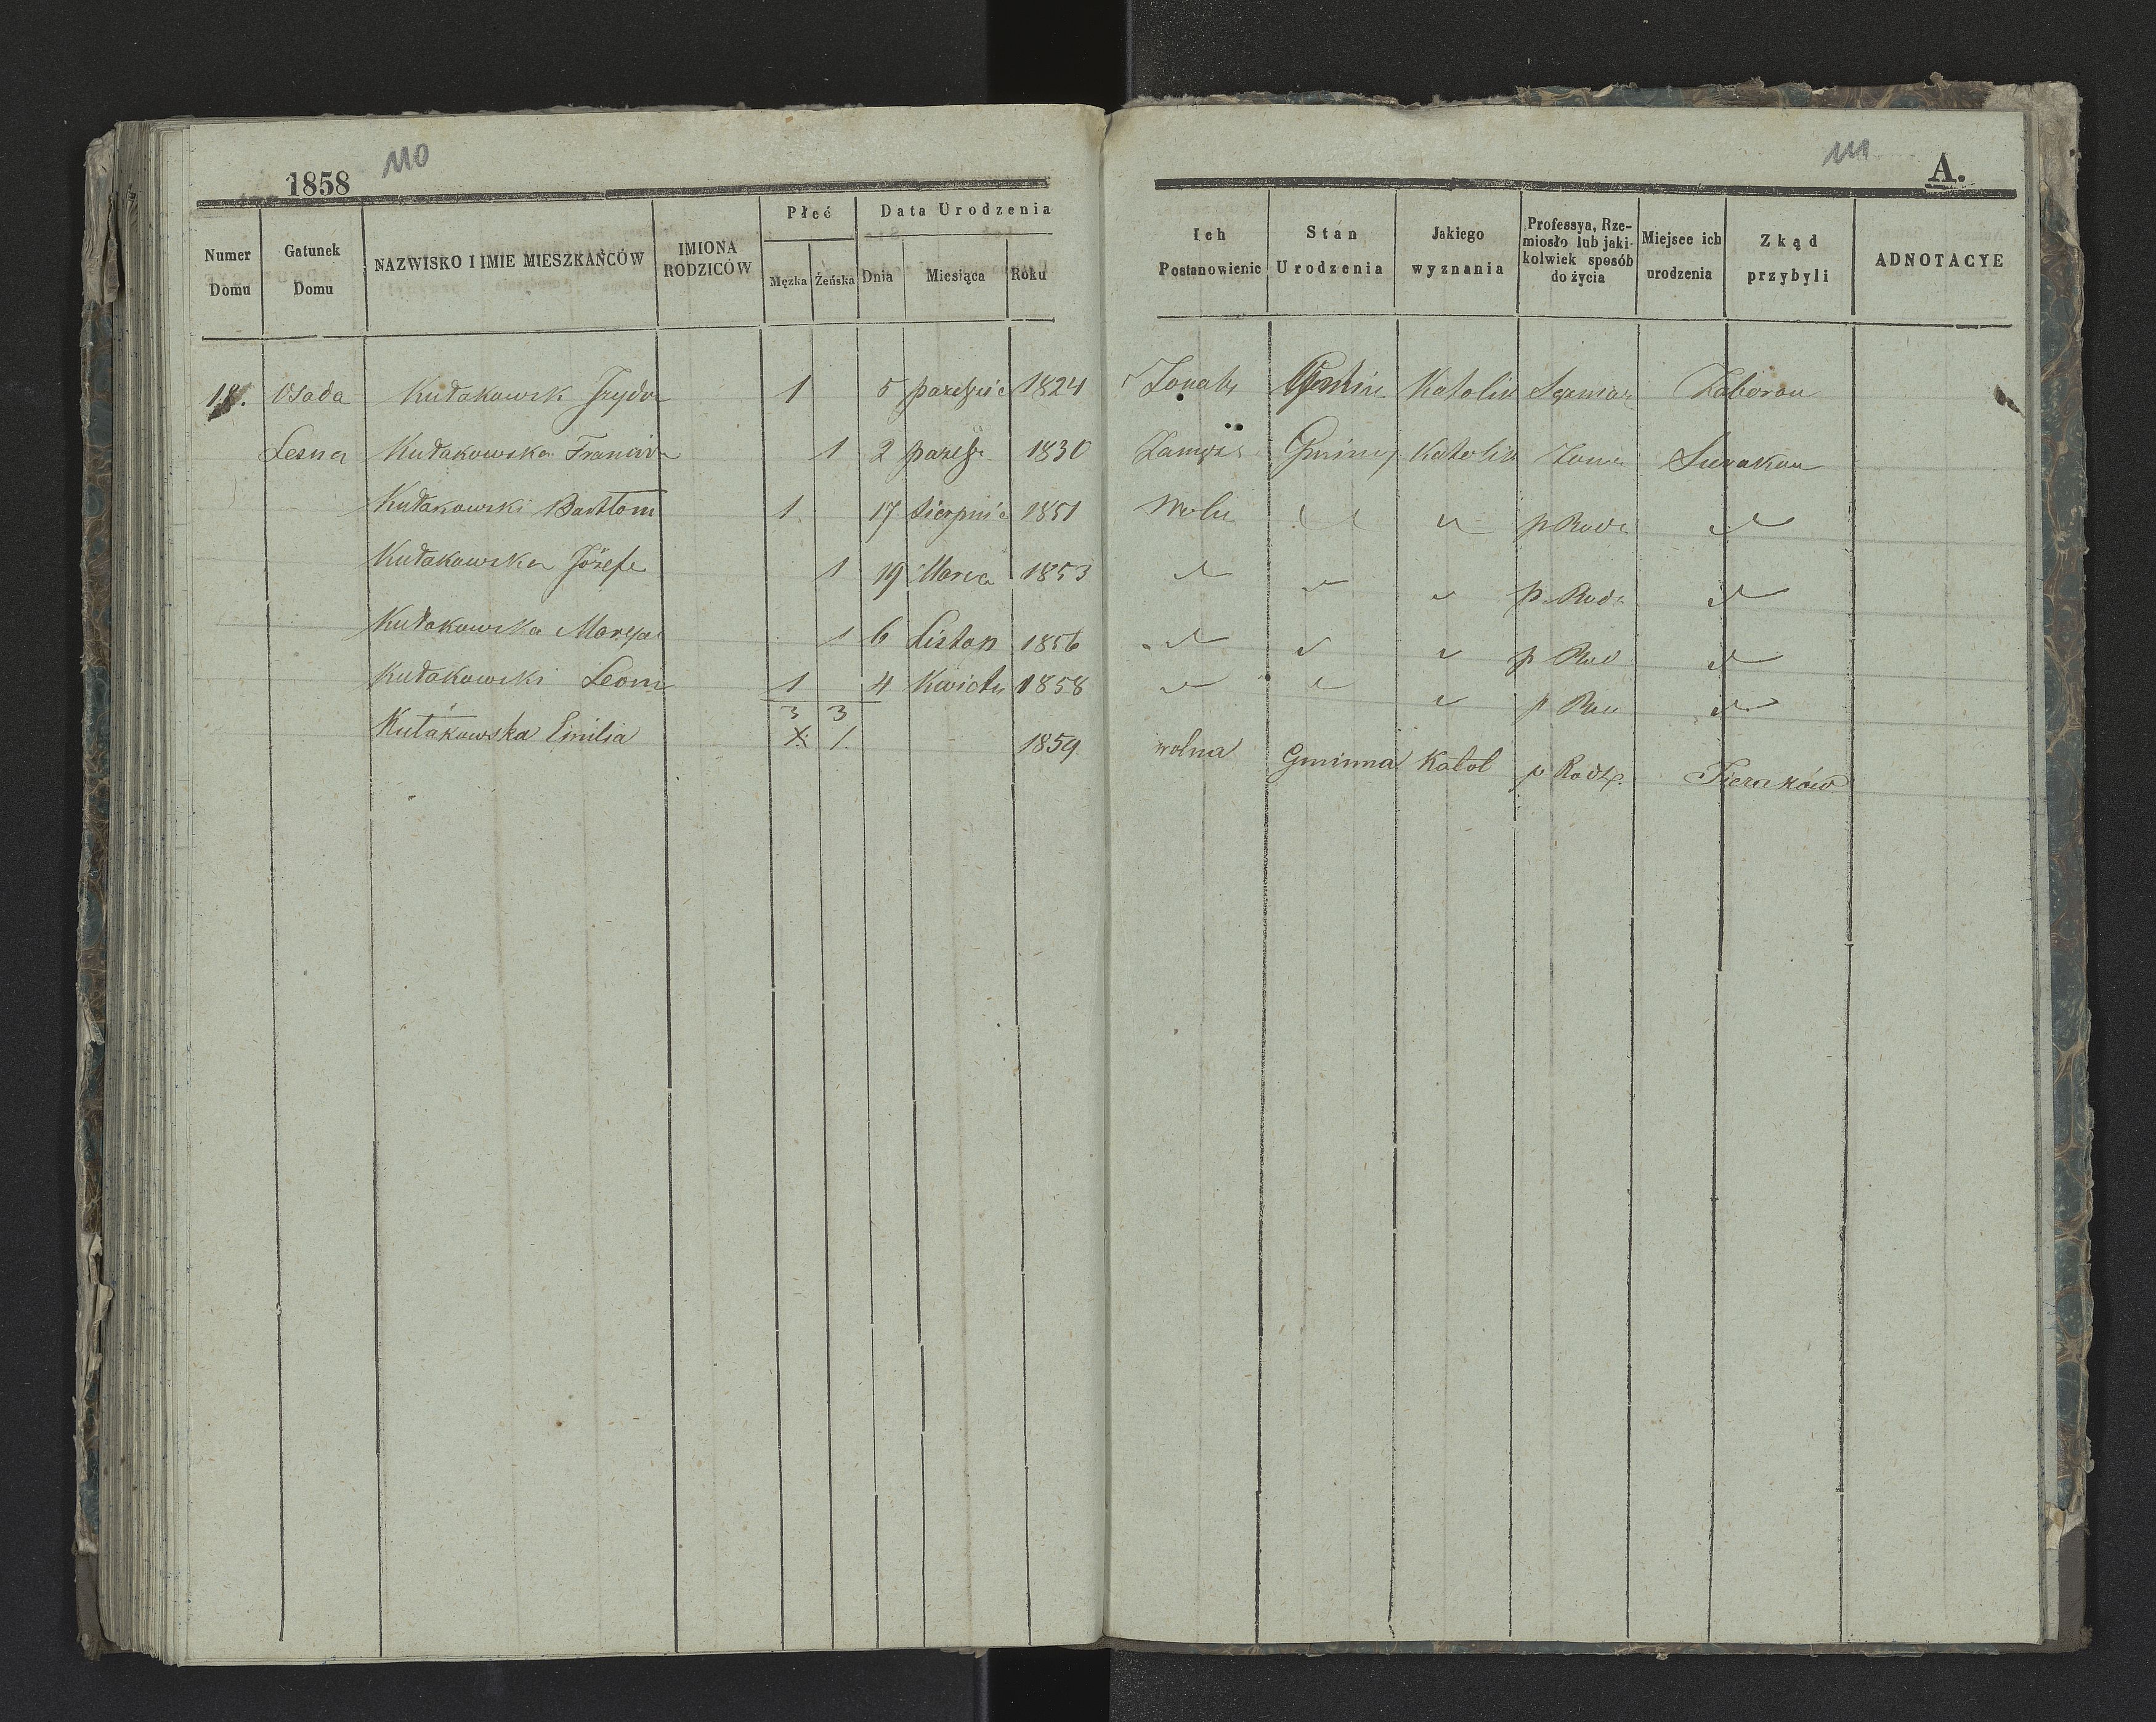 1858
110
111
A.
Numer Domu
Gatunek Domu
NAZWISKO I IMIE MIESZKAŃCÓW
IMIONA RODZICÓW
Płeć
Męzka Żeńska
Data Urodzenia
Dnia Miesiąca Roku
Ich Postanowienie
Stan Urodzenia
Jakiego wyznania
Professya, Rze-
miosło lub jaki-
kolwiek sposób
do życia
Miejsce ich urodzenia
Zkąd przybyli
ADNOTACYE
18. Osada Kułakowsk 1 5 1824 Katolik Zaborow
Leśna Kułakowska 1 2 1830 Gminny Katolik Żona
Kułakowski Bartłom 1 17 Sierpnia 1851 Woln p Rodz
Kułakowska Józefa 1 19 Marca 1853 p Rodz
Kułakowska 1 6 Listop 1856 p Rod
Kułakowski Leon 1 4 Kwietn 1858 p
3 3
Kułakowska Emilia 1. 1859 wolna Gminna Katol p Rodz. Sieraków